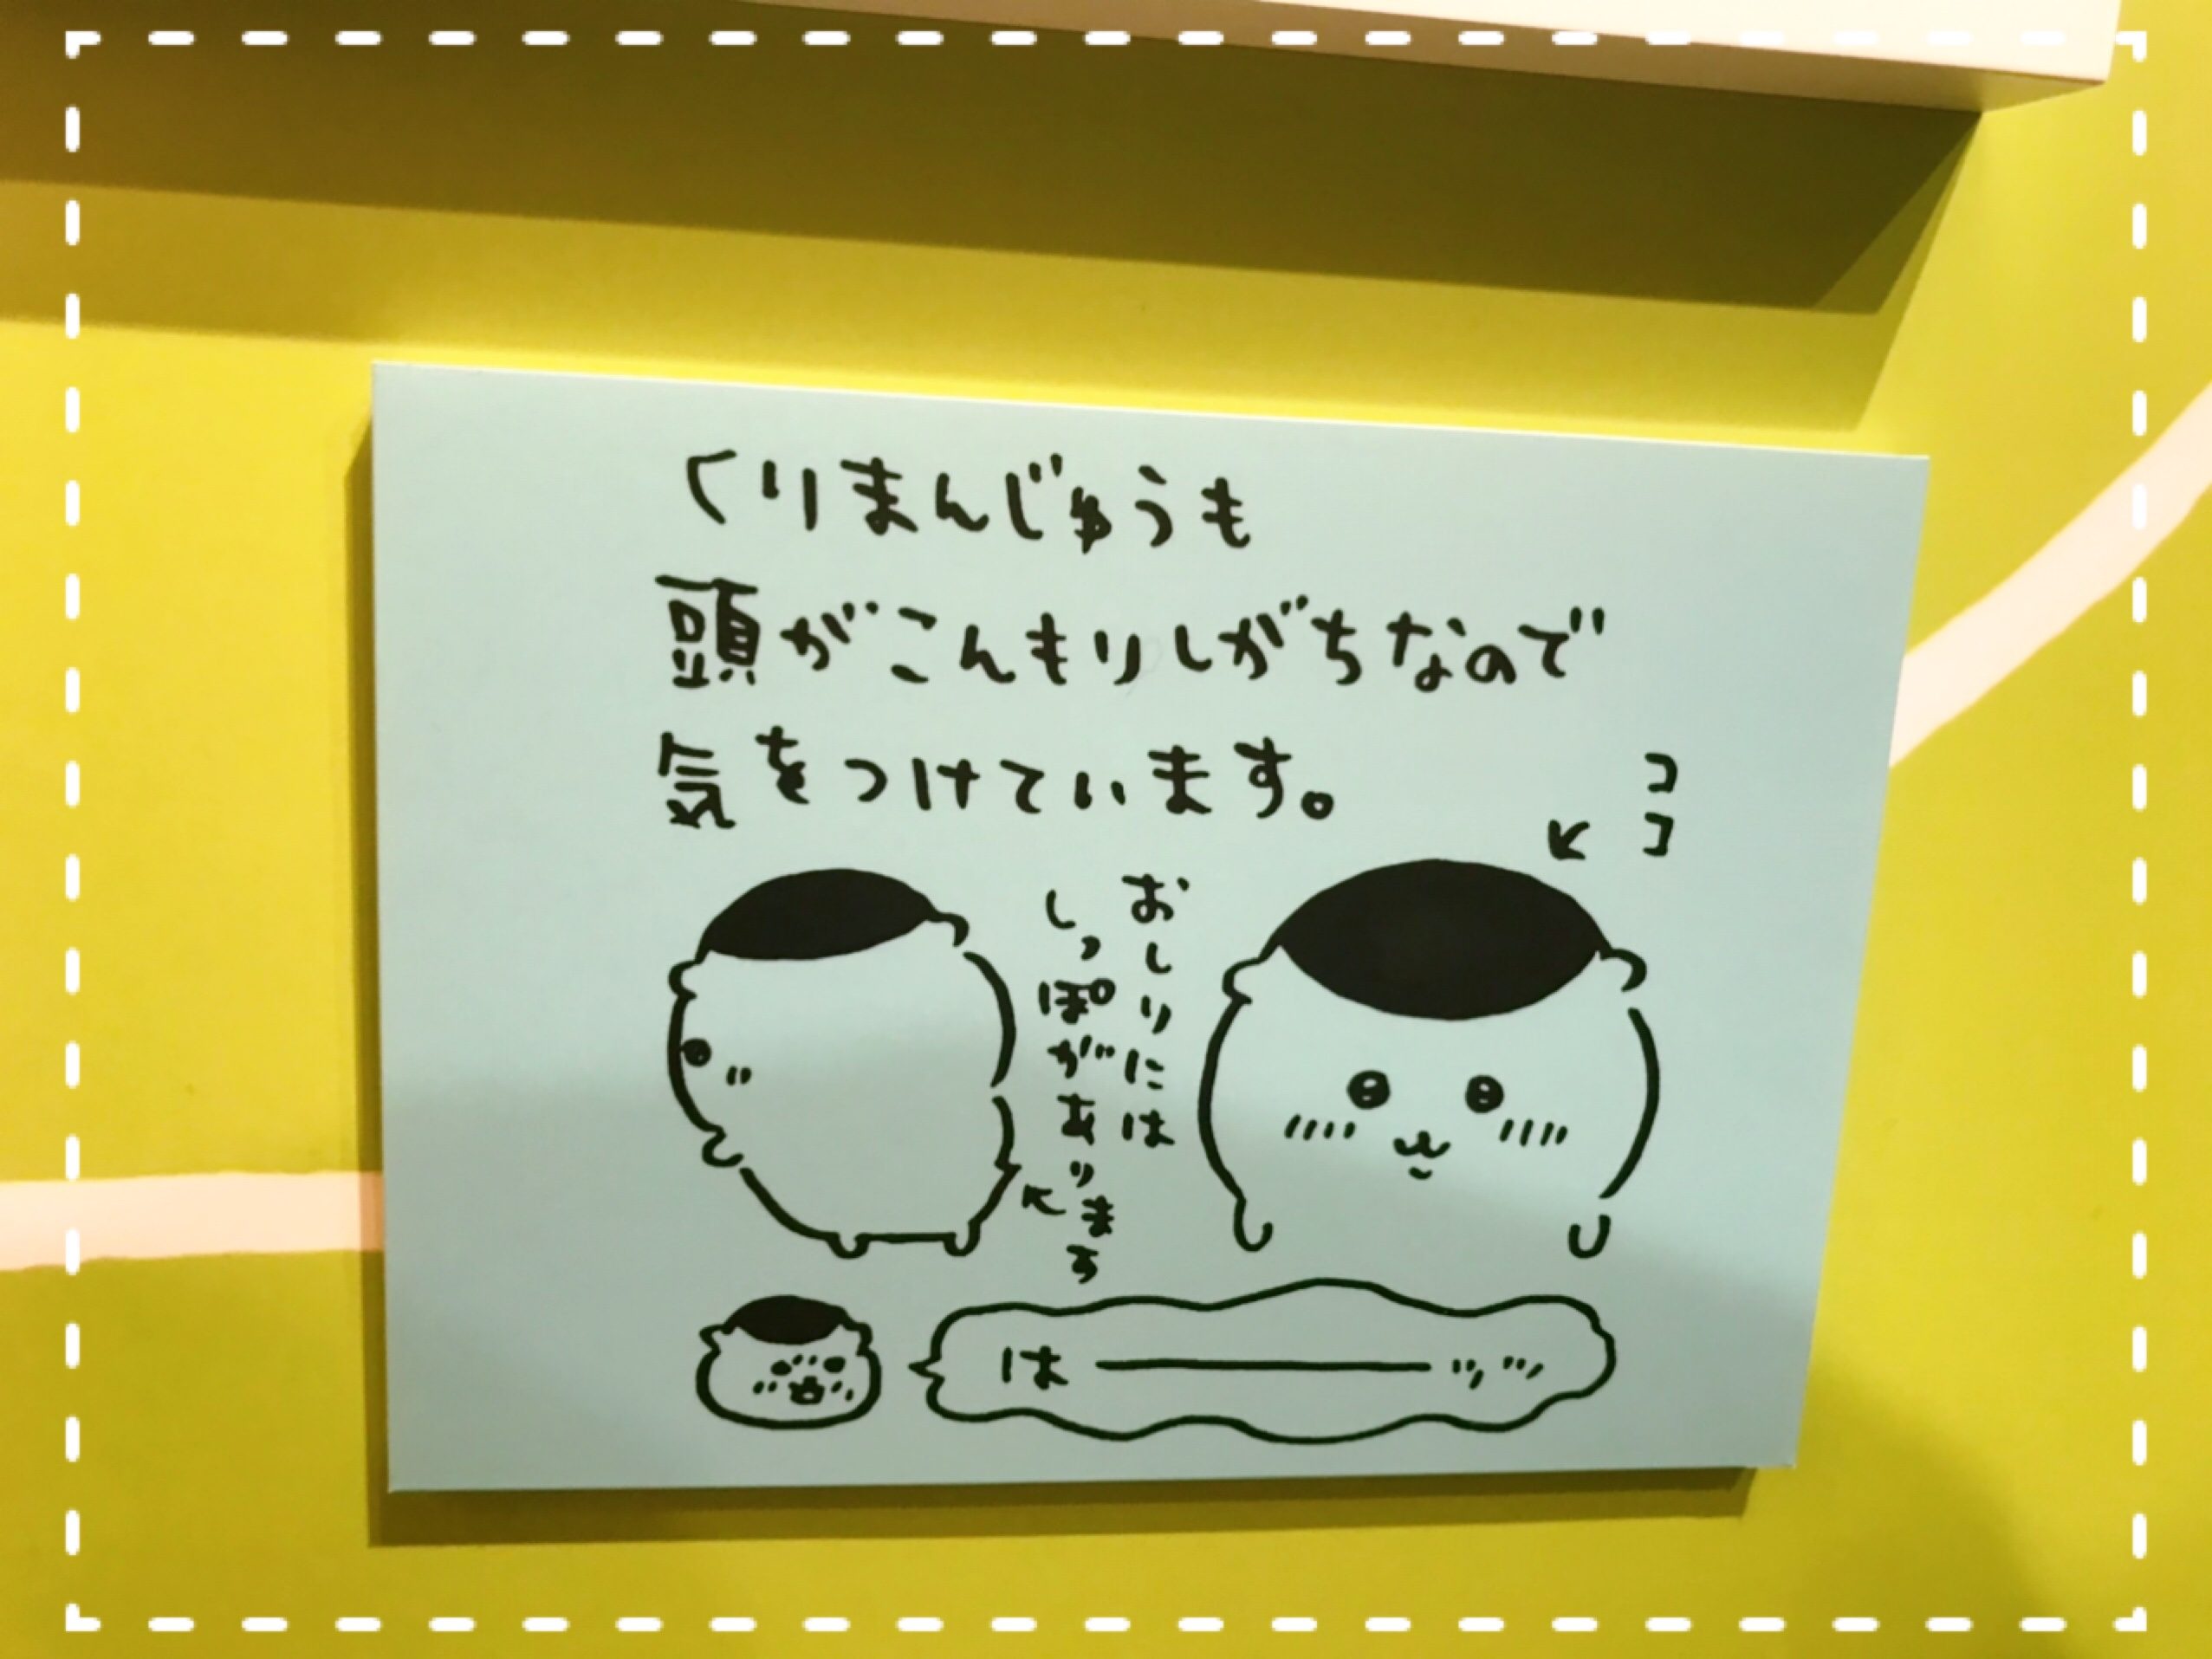 くりまんじゅうも
頭がこんもりしがちなので
気をつけています。
ココ
おしりには
しっぽがあります
は――――ッッ